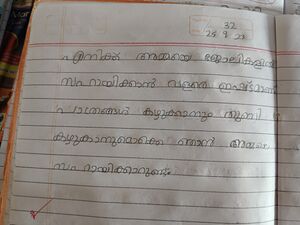 32
25 9 23
എനിക്ക് അമ്മയെ ജോലികളിൽ
സഹായിക്കാൻ വളരെ ഇഷ്ടമാണ്
പാത്രങ്ങൾ കഴുകാനും തുണി
കഴുകാനുമൊക്കെ ഞാൻ അമ്മയെ
സഹായിക്കാറുണ്ട്